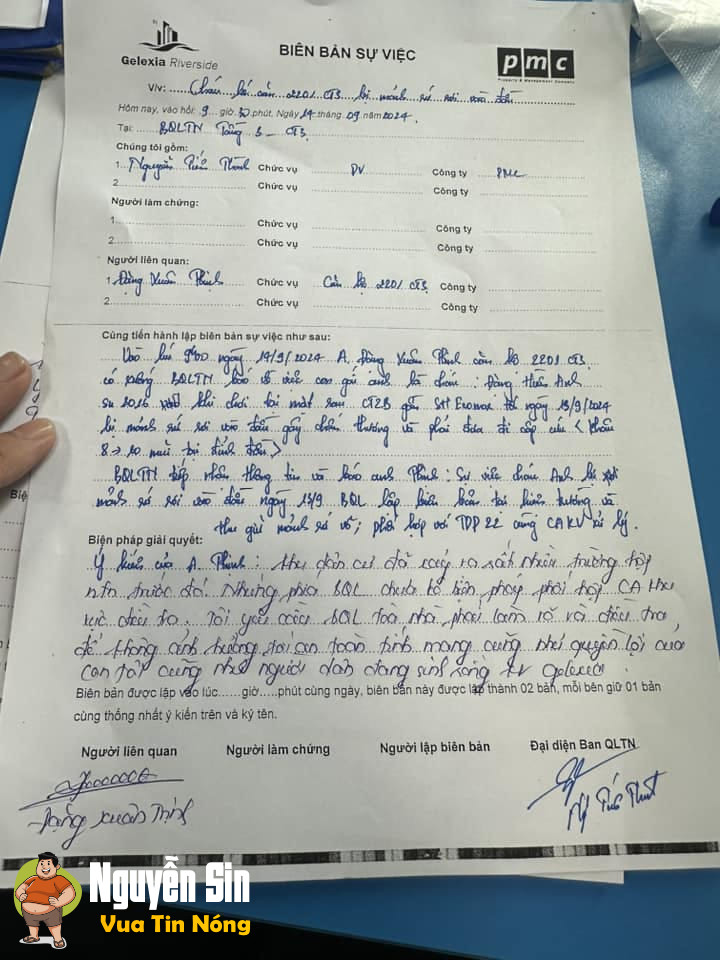 Gelexia Riverside
BIÊN BẢN SỰ VIỆC
pmc
Property & Management Company
V/v: Cháu bé căn 2201 CT3 bị mảnh sứ rơi vào đầu
Hôm nay, vào hồi: 9 giờ 30 phút, Ngày 14 tháng 09 năm 2024.
Tại: BQLTN Tầng 3 - CT3
Chúng tôi gồm:
1. Nguyễn Tiến Chức vụ DV Công ty PMC
2 Chức vụ Công ty
Người làm chứng:
1 Chức vụ Công ty
2 Chức vụ Công ty
Người liên quan:
1 Đặng Xuân Thịnh Chức vụ Căn hộ 2201 CT3 Công ty
2 Chức vụ Công ty
Cùng tiến hành lập biên bản sự việc như sau:
Vào lúc 9h00 ngày 14/9/2024 A. Đặng Xuân Thịnh căn hộ 2201 CT3
có xuống BQLTN báo về việc con gái anh là cháu: Đặng Anh
sn 2016 khi chơi tại mặt sau CT2B gần SH tối ngày 13/9/2024
bị mảnh sứ rơi vào đầu gây chấn thương và phải đưa đi cấp cứu < khâu
8 -> 10 mũi tại đỉnh đầu >
BQLTN tiếp nhận thông tin và báo anh Thịnh: Sự việc cháu Anh bị rơi
mảnh sứ rơi vào đầu ngày 13/9 BQL lập biên bản tại hiện trường và
thu giữ mảnh sứ vỡ; phối hợp với TDP 22 cùng CAKV xử lý.
Biện pháp giải quyết:
Ý kiến của A. Thịnh: Khu dân cư đã xảy ra rất nhiều trường hợp
như trước đó. Nhưng phía BQL chưa có biện pháp phối hợp CA khu
vực điều tra. Tôi yêu cầu BQL toà nhà phải làm rõ và điều tra
để không ảnh hưởng tới an toàn tính mạng cũng như quyền lợi của
con tôi cũng như người dân đang sinh sống tại gelexia.
Biên bản được lập vào lúc......giờ.....phút cùng ngày, biên bản này được lập thành 02 bản, mỗi bên giữ 01 bản
cùng thống nhất ý kiến trên và ký tên.
Người liên quan Người làm chứng Người lập biên bản Đại diện Ban QLTN
Đặng Xuân Thịnh
Nguyễn Sin
Vua Tin Nóng